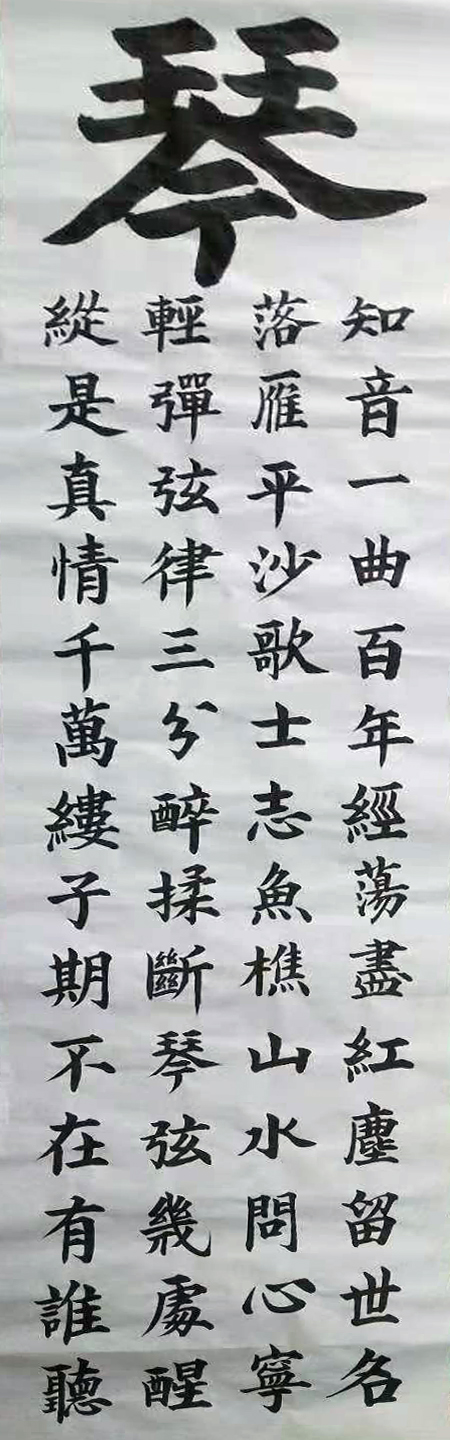 琴
知音一曲百年經蕩盡紅塵留世名
落雁平沙歌士志魚樵山水問心寧
輕彈弦律三分醉揉斷琴弦幾處醒
縱是真情千萬縷子期不在有誰聽